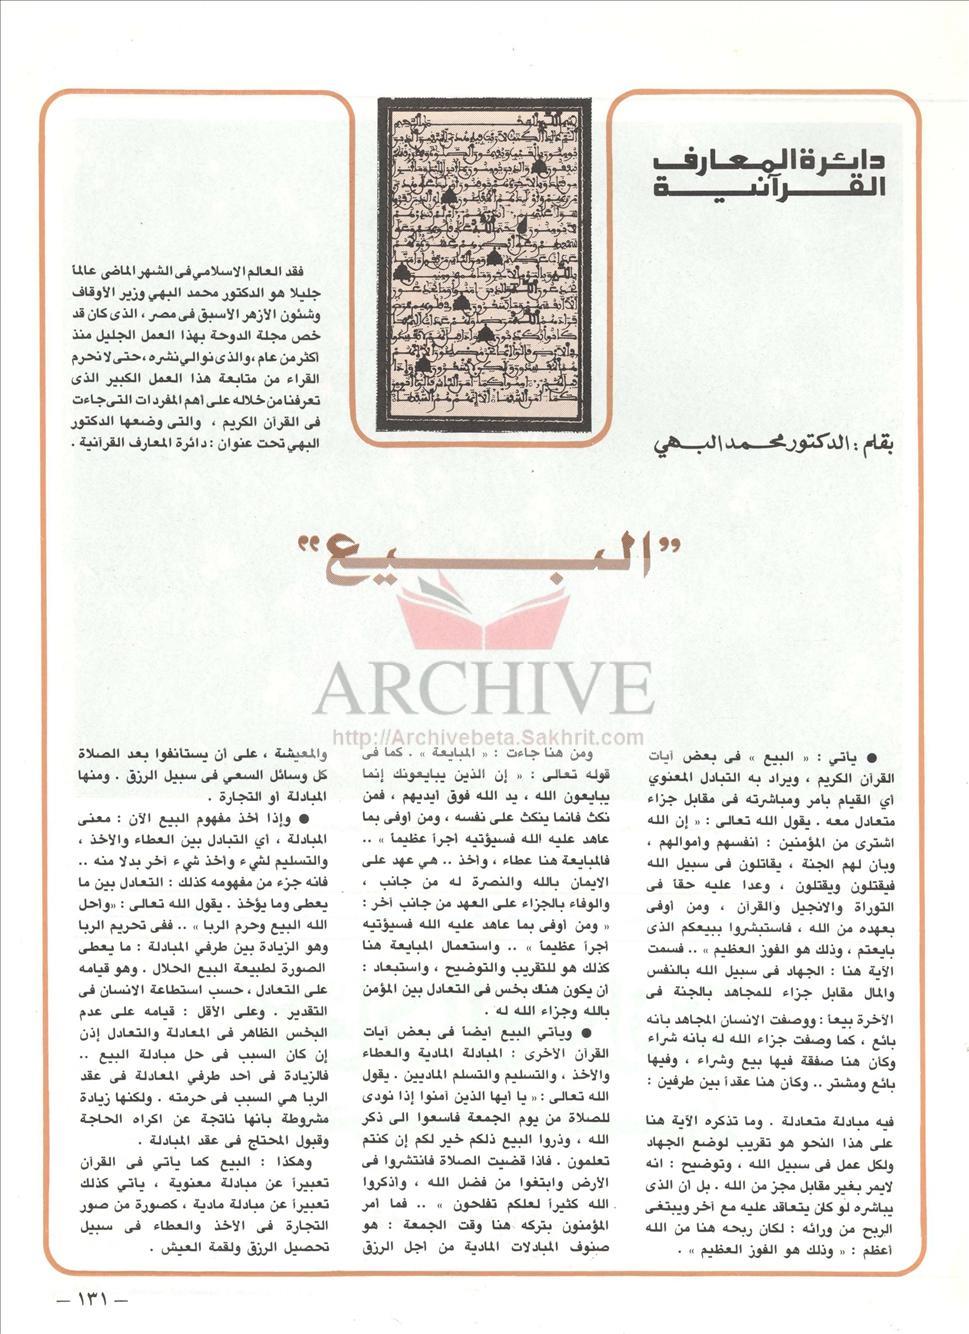 دائرة المعارف
القرآنية
بقلم : الدكتور محمد البهي
فقد العالم الاسلامي فى الشهر الماضى عالماً
جليلا هو الدكتور محمد البهي وزير الأوقاف
وشئون الأزهر الأسبق فى مصر ، الذى كان قد
خص مجلة الدوحة بهذا العمل الجليل منذ
أكثر من عام ، والذى نوالي نشره ، حتى لا نحرم
القراء من متابعة هذا العمل الكبير الذى
تعرفنا من خلاله على أهم المفردات التى جاءت
فى القرآن الكريم ، والتى وضعها الدكتور
البهي تحت عنوان : دائرة المعارف القرآنية .
”البيع“
ARCHIVE
http://Archivebeta.Sakhrit.com
● يأتي : « البيع » فى بعض آيات
القرآن الكريم ، ويراد به التبادل المعنوي
أي القيام بأمر ومباشرته فى مقابل جزاء
متعادل معه . يقول الله تعالى : « إن الله
اشترى من المؤمنين : أنفسهم وأموالهم ،
وبأن لهم الجنة ، يقاتلون فى سبيل الله
فيقتلون ويقتلون ، وعدا عليه حقاً فى
التوراة والانجيل والقرآن ، ومن أوفى
بعهده من الله ، فاستبشروا ببيعكم الذى
بايعتم ، وذلك هو الفوز العظيم » .. فسمت
الآية هنا : الجهاد فى سبيل الله بالنفس
والمال مقابل جزاء للمجاهد بالجنة فى
الآخرة بيعاً : ووصفت الانسان المجاهد بأنه
بائع ، كما وصفت جزاء الله له بأنه شراء
وكأن هنا صفقة فيها بيع وشراء ، وفيها
بائع ومشتر .. وكأن هنا عقداً بين طرفين :
فيه مبادلة متعادلة . وما تذكره الآية هنا
على هذا النحو هو تقريب لوضع الجهاد
ولكل عمل فى سبيل الله ، وتوضيح : انه
لايمر بغير مقابل مجز من الله . بل أن الذى
يباشره لو كان يتعاقد عليه مع أخر ويبتغى
الربح من ورائه : لكان ربحه هنا من الله
أعظم : « وذلك هو الفوز العظيم » .
ومن هنا جاءت : « المبايعة » . كما فى
قوله تعالى : « إن الذين يبايعونك إنما
يبايعون الله ، يد الله فوق أيديهم ، فمن
نكث فانما ينكث على نفسه ، ومن أوفى بما
عاهد عليه الله فسيؤتيه أجراً عظيماً » ..
فالمبايعة هنا عطاء ، وأخذ .. هي عهد على
الايمان بالله والنصرة له من جانب ،
والوفاء بالجزاء على العهد من جانب أخر :
« ومن أوفى بما عاهد عليه الله فسيؤتيه
أجراً عظيماً » .. واستعمال المبايعة هنا
كذلك هو للتقريب والتوضيح ، واستبعاد :
أن يكون هناك بخس فى التعادل بين المؤمن
بالله وجزاء الله له .
● ويأتي البيع أيضاً فى بعض آيات
القرآن الأخرى : المبادلة المادية والعطاء
والأخذ ، والتسليم والتسلم الماديين . يقول
الله تعالى : « يا أيها الذين آمنوا إذا نودى
للصلاة من يوم الجمعة فاسعوا الى ذكر
الله ، وذروا البيع ذلكم خير لكم إن كنتم
تعلمون . فاذا قضيت الصلاة فانتشروا فى
الأرض وابتغوا من فضل الله ، وأذكروا
الله كثيراً لعلكم تفلحون » .. فما أمر
المؤمنون بتركه هنا وقت الجمعة : هو
صنوف المبادلات المادية من أجل الرزق
والمعيشة ، على أن يستأنفوا بعد الصلاة
كل وسائل السعي فى سبيل الرزق . ومنها
المبادلة أو التجارة .
● وإذا أخذ مفهوم البيع الآن : معنى
المبادلة ، أي التبادل بين العطاء والأخذ ،
والتسليم لشيء وأخذ شيء أخر بدلا منه ..
فانه جزء من مفهومه كذلك : التعادل بين ما
يعطى وما يؤخذ . يقول الله تعالى : «وأحل
الله البيع وحرم الربا » .. ففى تحريم الربا
وهو الزيادة بين طرفي المبادلة : ما يعطى
الصورة لطبيعة البيع الحلال . وهو قيامه
على التعادل ، حسب استطاعة الانسان فى
التقدير . وعلى الأقل : قيامه على عدم
البخس الظاهر فى المعادلة والتعادل إذن
إن كان السبب فى حل مبادلة البيع ..
فالزيادة فى أحد طرفي المعادلة فى عقد
الربا هي السبب فى حرمته . ولكنها زيادة
مشروطة بأنها ناتجة عن اكراه الحاجة
وقبول المحتاج فى عقد المبادلة .
وهكذا : البيع كما يأتي فى القرآن
تعبيراً عن مبادلة معنوية ، يأتي كذلك
تعبيراً عن مبادلة مادية ، كصورة من صور
التجارة فى الأخذ والعطاء فى سبيل
تحصيل الرزق ولقمة العيش .
– ١٣١ –